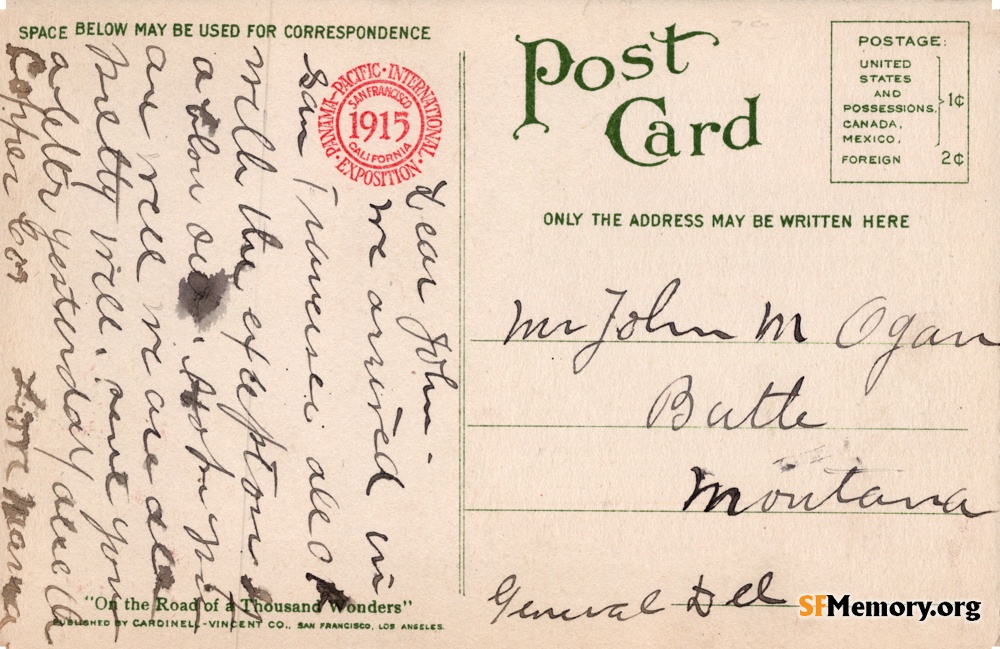 SPACE BELOW MAY BE USED FOR CORRESPONDENCE
PANAMA-PACIFIC·INTERNATIONAL·EXPOSITION·
SAN FRANCISCO
1915
CALIFORNIA
Dear John
we arrived in
San Francisci all OK
with the exeption of
a blow out. Hoping
all well we are all
pretty well. sent you
a letter yesterday
Copper
Post
Card
POSTAGE:
UNITED
STATES
AND
POSSESSIONS,
CANADA,
MEXICO,
1¢
FOREIGN 2¢
ONLY THE ADDRESS MAY BE WRITTEN HERE
Mr John M Ogan
Butte
Montana
General Del
"On the Road of a Thousand Wonders"
PUBLISHED BY CARDINELL-VINCENT CO., SAN FRANCISCO, LOS ANGELES.
SFMemory.org